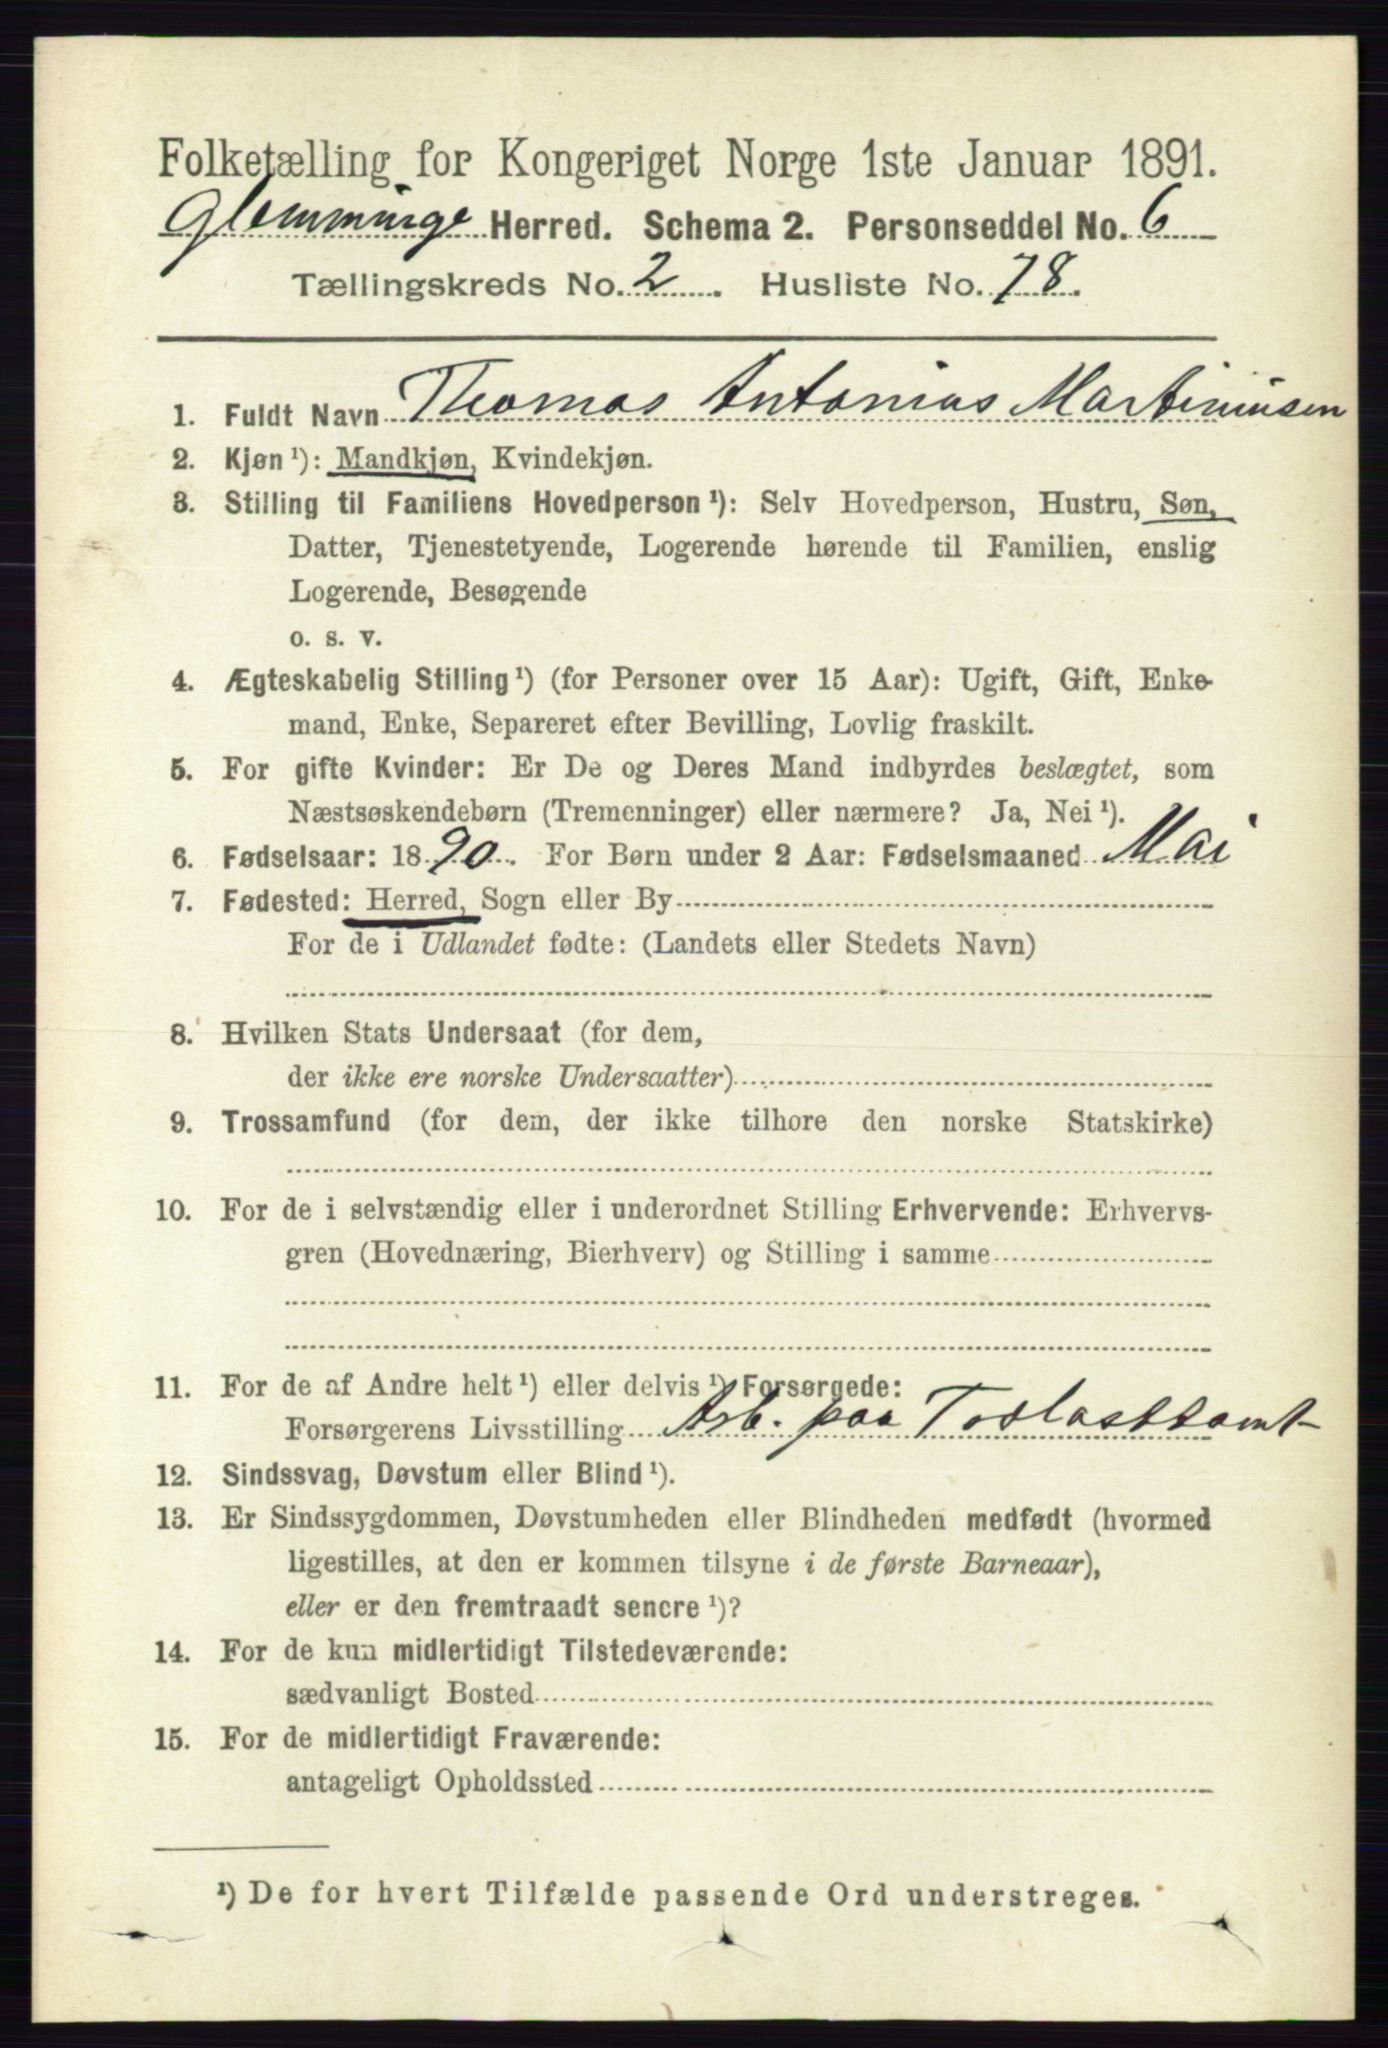 Folketælling for Kongeriget Norge 1ste Januar 1891.
Glemminge Herred. Schema 2. Personseddel No. 6
Tællingskreds No. 2. Husliste No. 78.
1. Fuldt Navn Thomas Antonius Martiniusen
2. Kjøn ¹): Mandkjøn, Kvindekjøn.
3. Stilling til Familiens Hovedperson ¹): Selv Hovedperson, Hustru, Søn,
Datter, Tjenestetyende, Logerende hørende til Familien, enslig
Logerende, Besøgende
o. s. v.
4. Ægteskabelig Stilling ¹) (for Personer over 15 Aar): Ugift, Gift, Enke-
mand, Enke, Separeret efter Bevilling, Lovlig fraskilt.
5. For gifte Kvinder: Er De og Deres Mand indbyrdes beslægtet, som
Næstsøskendebørn (Tremenninger) eller nærmere? Ja, Nei ¹).
6. Fødselsaar: 1890. For Børn under 2 Aar: Fødselsmaaned Mai
7. Fødested: Herred, Sogn eller By
For de i Udlandet fødte: (Landets eller Stedets Navn)
8. Hvilken Stats Undersaat (for dem,
der ikke ere norske Undersaatter)
9. Trossamfund (for dem, der ikke tilhøre den norske Statskirke)
10. For de i selvstændig eller i underordnet Stilling Erhvervende: Erhvervs-
gren (Hovednæring, Bierhverv) og Stilling i samme
11. For de af Andre helt ¹) eller delvis ¹) Forsørgede:
Forsørgerens Livsstilling Arb. paa
12. Sindssvag, Døvstum eller Blind ¹).
13. Er Sindssygdommen, Døvstumheden eller Blindheden medfødt (hvormed
ligestilles, at den er kommen tilsyne i de første Barneaar),
eller er den fremtraadt senere ¹)?
14. For de kun midlertidigt Tilstedeværende:
sædvanligt Bosted
15. For de midlertidigt Fraværende:
antageligt Opholdssted
¹) De for hvert Tilfælde passende Ord understreges.